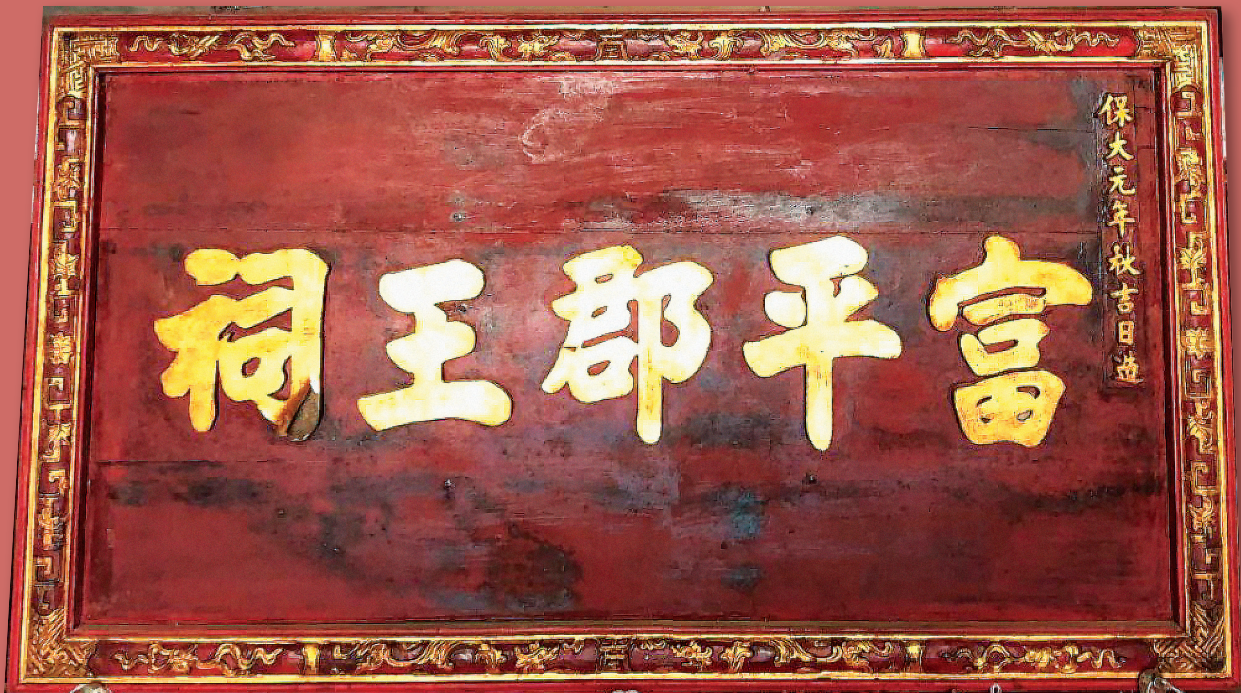 保大元年秋吉日造
富平郡王祠